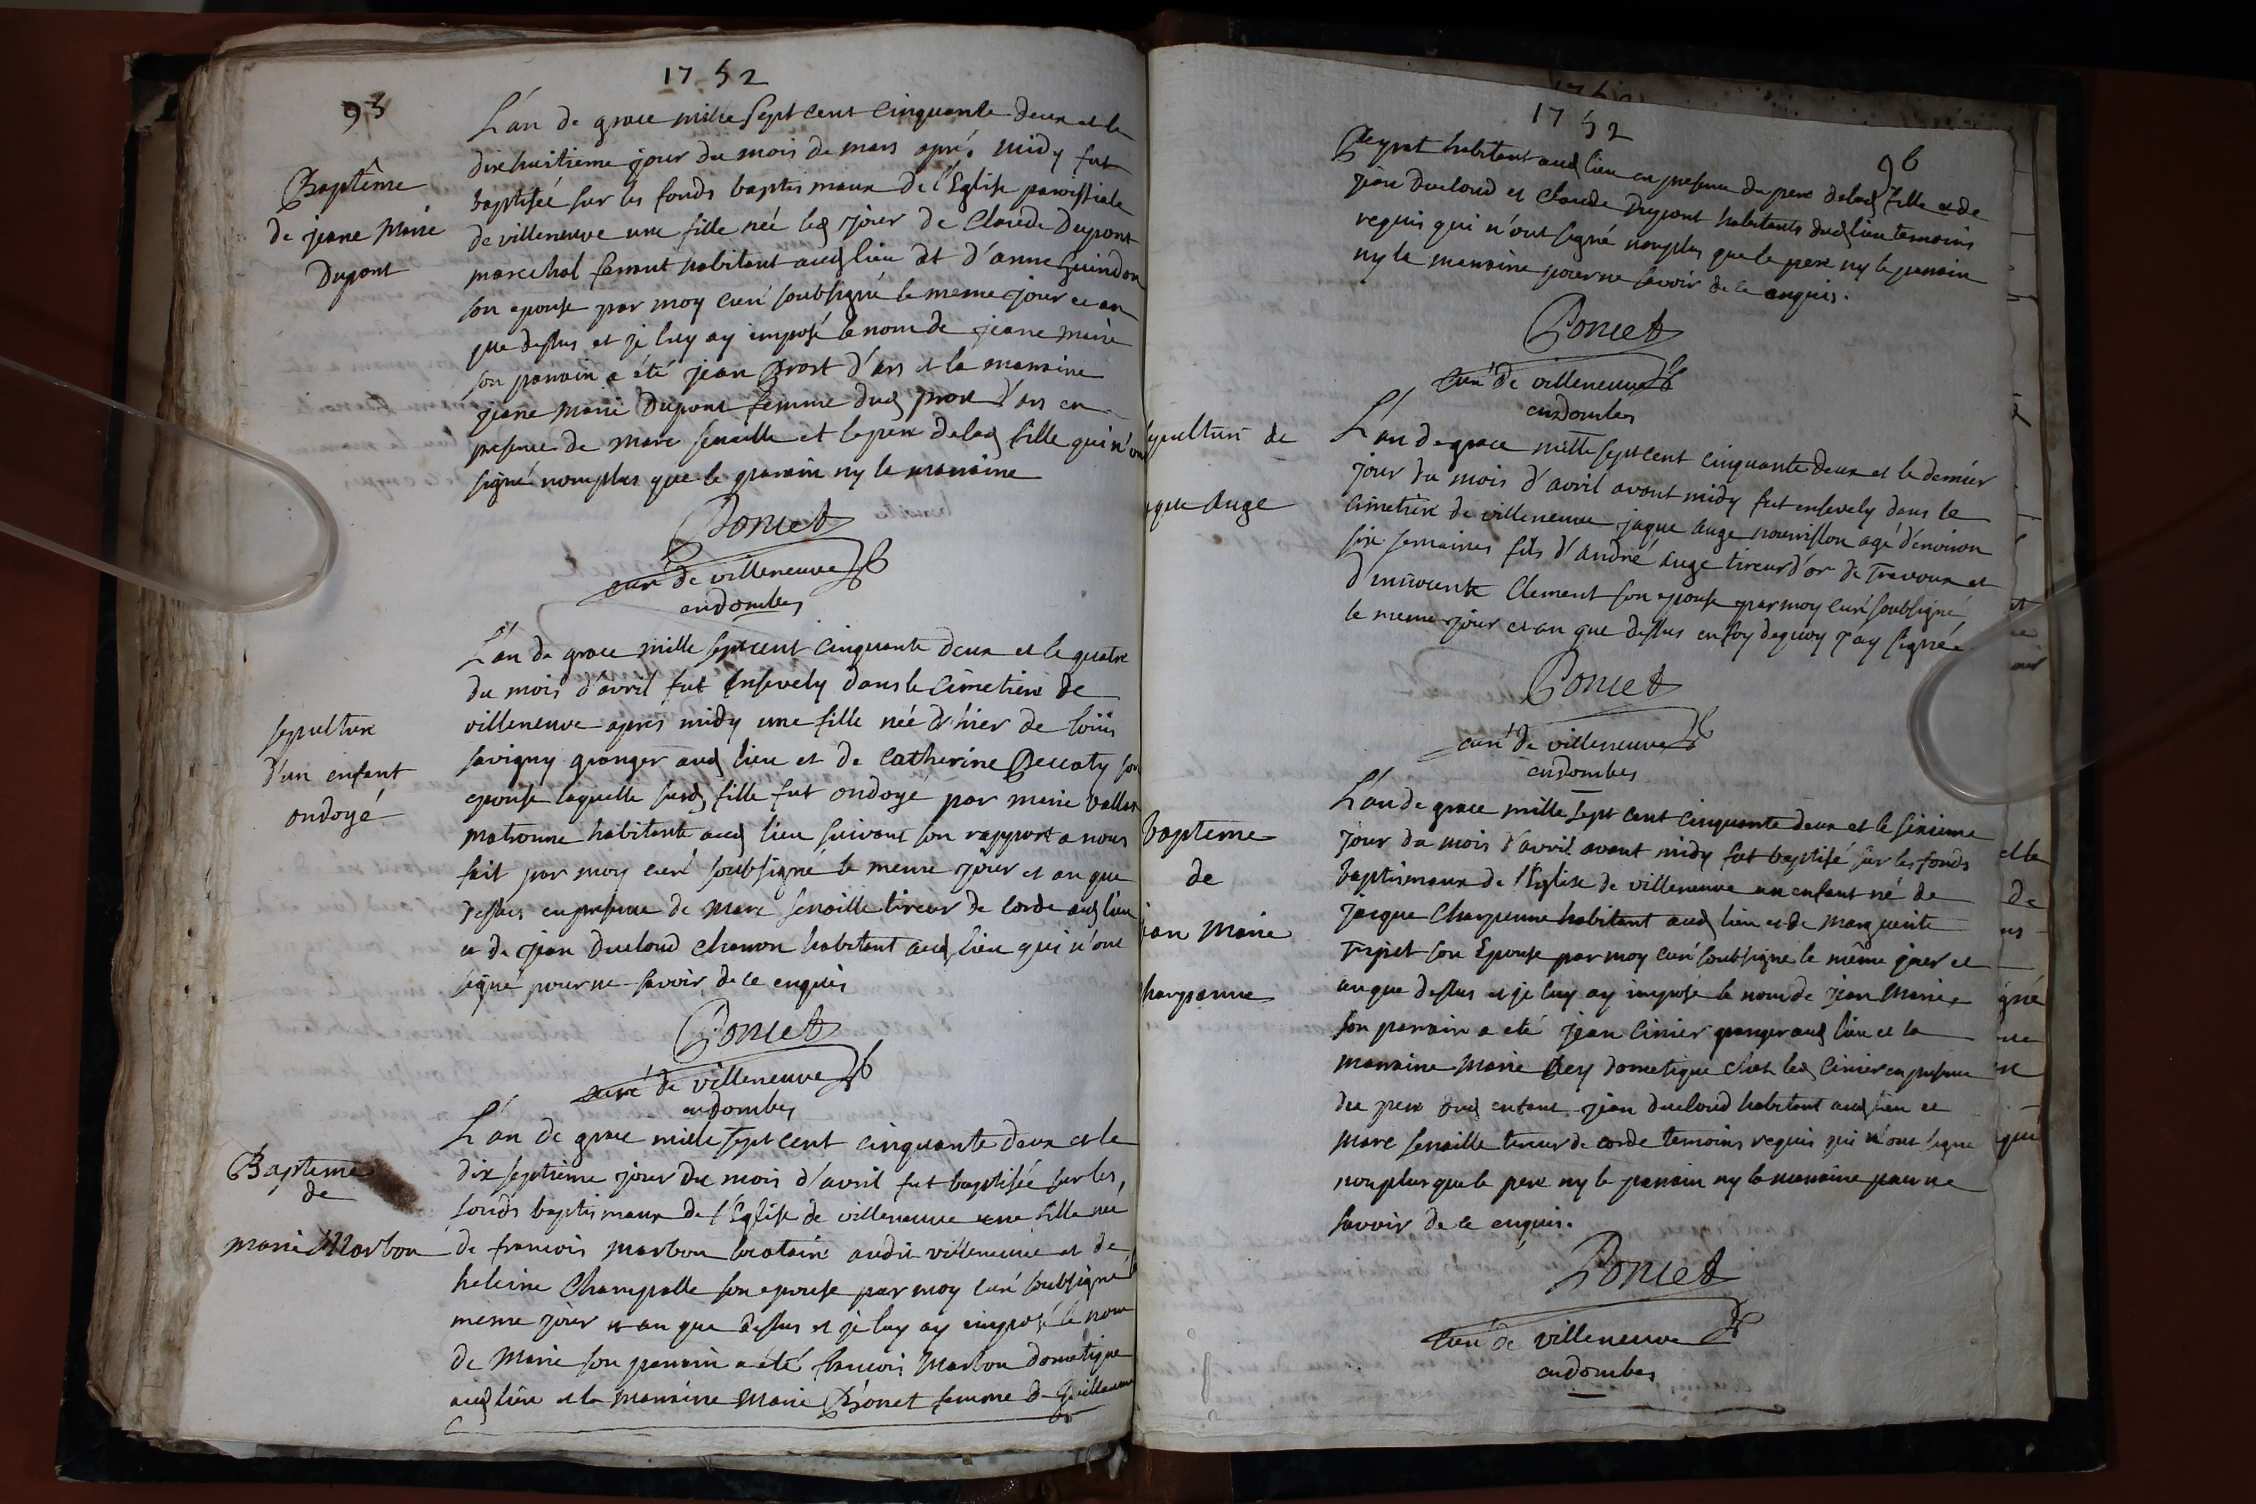 1752
93
Baptême
de jeane Marie
Dupont
L'an de grace mille sept cent cinquante deux et le
dixhuitieme jour du mois de mars aprés midy fut
baptisée sur les fonds baptismaux de l'Eglise paroissiale
de villeneuve une fille née led jour de Claude Dupont
marechal ferrant habitant aud lieu et d'anne Guindon
son epouse par moy curé soubsigné le meme jour et an
que dessus et je luy ay imposé le nom de jeane marie
son parrain a été jean Prost d'ars et la marraine
jeane Marie Dupont femme dud prost d'ars en
presence de Marc senaille et le pere de lad fille qui n'ont
signé nomplus que le parrain ny la marraine
Poncet
curé de villeneuve
en dombes
sepulture
d'un enfant
ondoyé
L'an de grace mille sept cent cinquante deux et le quatre
du mois d'avril fut ensevely dans le cimetiere de
villeneuve aprés midy une fille née d'hier de loüis
savigny granger aud lieu et de Catherine son
epouse laquelle susd fille fut ondoyé par marie
matronne habitante aud lieu suivant son rapport a nous
fait par moy curé soubsigné le meme jour et an que
dessus en presence de Marc senaille tireur de corde aud lieu
et de jean Ducloud charron habitant aud lieu qui n'ont
signé pour ne savoir de ce enquis
Poncet
curé de villeneuve
en dombes
Bapteme
de
marie Marbou
L'an de grace mille sept cent cinquante deux et le
dix septieme jour du mois d'avril fut baptisée sur les
fonds baptismaux de l'Eglise de villeneuve une fille née
de francois marbou locataire audit villeneuve et de
heleine Champalle son epouse par moy curé soubsigné
meme jour et an que dessus et je luy ay imposé le nom
de Marie son parrain a été francois Marbou dometique
aud lieu et la marraine Marie femme de Guillaume
1752
96
Peyrat habitant aud lieu en presence du pere de lad fille et de
jean Ducloud et Claude Dupont habitants dud lieu temoins
requis qui n'ont signé nomplus que le pere ny le parrain
ny la marraine pour ne savoir de ce enquis.
Poncet
curé de villeneuve
en dombes
sepulture de
jaque Auge
L'an de grace mille sept cent cinquante deux et le dernier
jour du mois d'avril avant midy fut ensevely dans le
cimetiere de villeneuve jaque auge nourisson agé d'environ
six semaines fils d'andré auge tireur d'or de Trevoux et
d'innocente Clement son epouse par moy curé soubsigné
le meme jour et an que dessus en foy de quoy j'ay signé
Poncet
curé de villeneuve
en dombes
bapteme
de
jean Marie
Charpenne
L'an de grace mille sept cent cinquante deux et le sixieme
jour du mois d'avril avant midy fut baptisé sur les fonds
baptismaux de l'Eglise de villeneuve un enfant né de
jacque Charpenne habitant aud lieu et de marguerite
son Epouse par moy curé soubsigné le même jour et
an que dessus et je luy ay imposé le nom de jean Marie
son parrain a été jean Cinier granger aud lieu et la
marraine Marie Rey dometique chez led Cinier en presence
du pere dud enfant jean ducloud habitant aud lieu et
Marc senaille tireur de corde temoins requis qui n'ont signé
nomplus que le pere ny le parrain ny la marraine pour ne
savoir de ce enquis.
Poncet
curé de villeneuve
en dombes